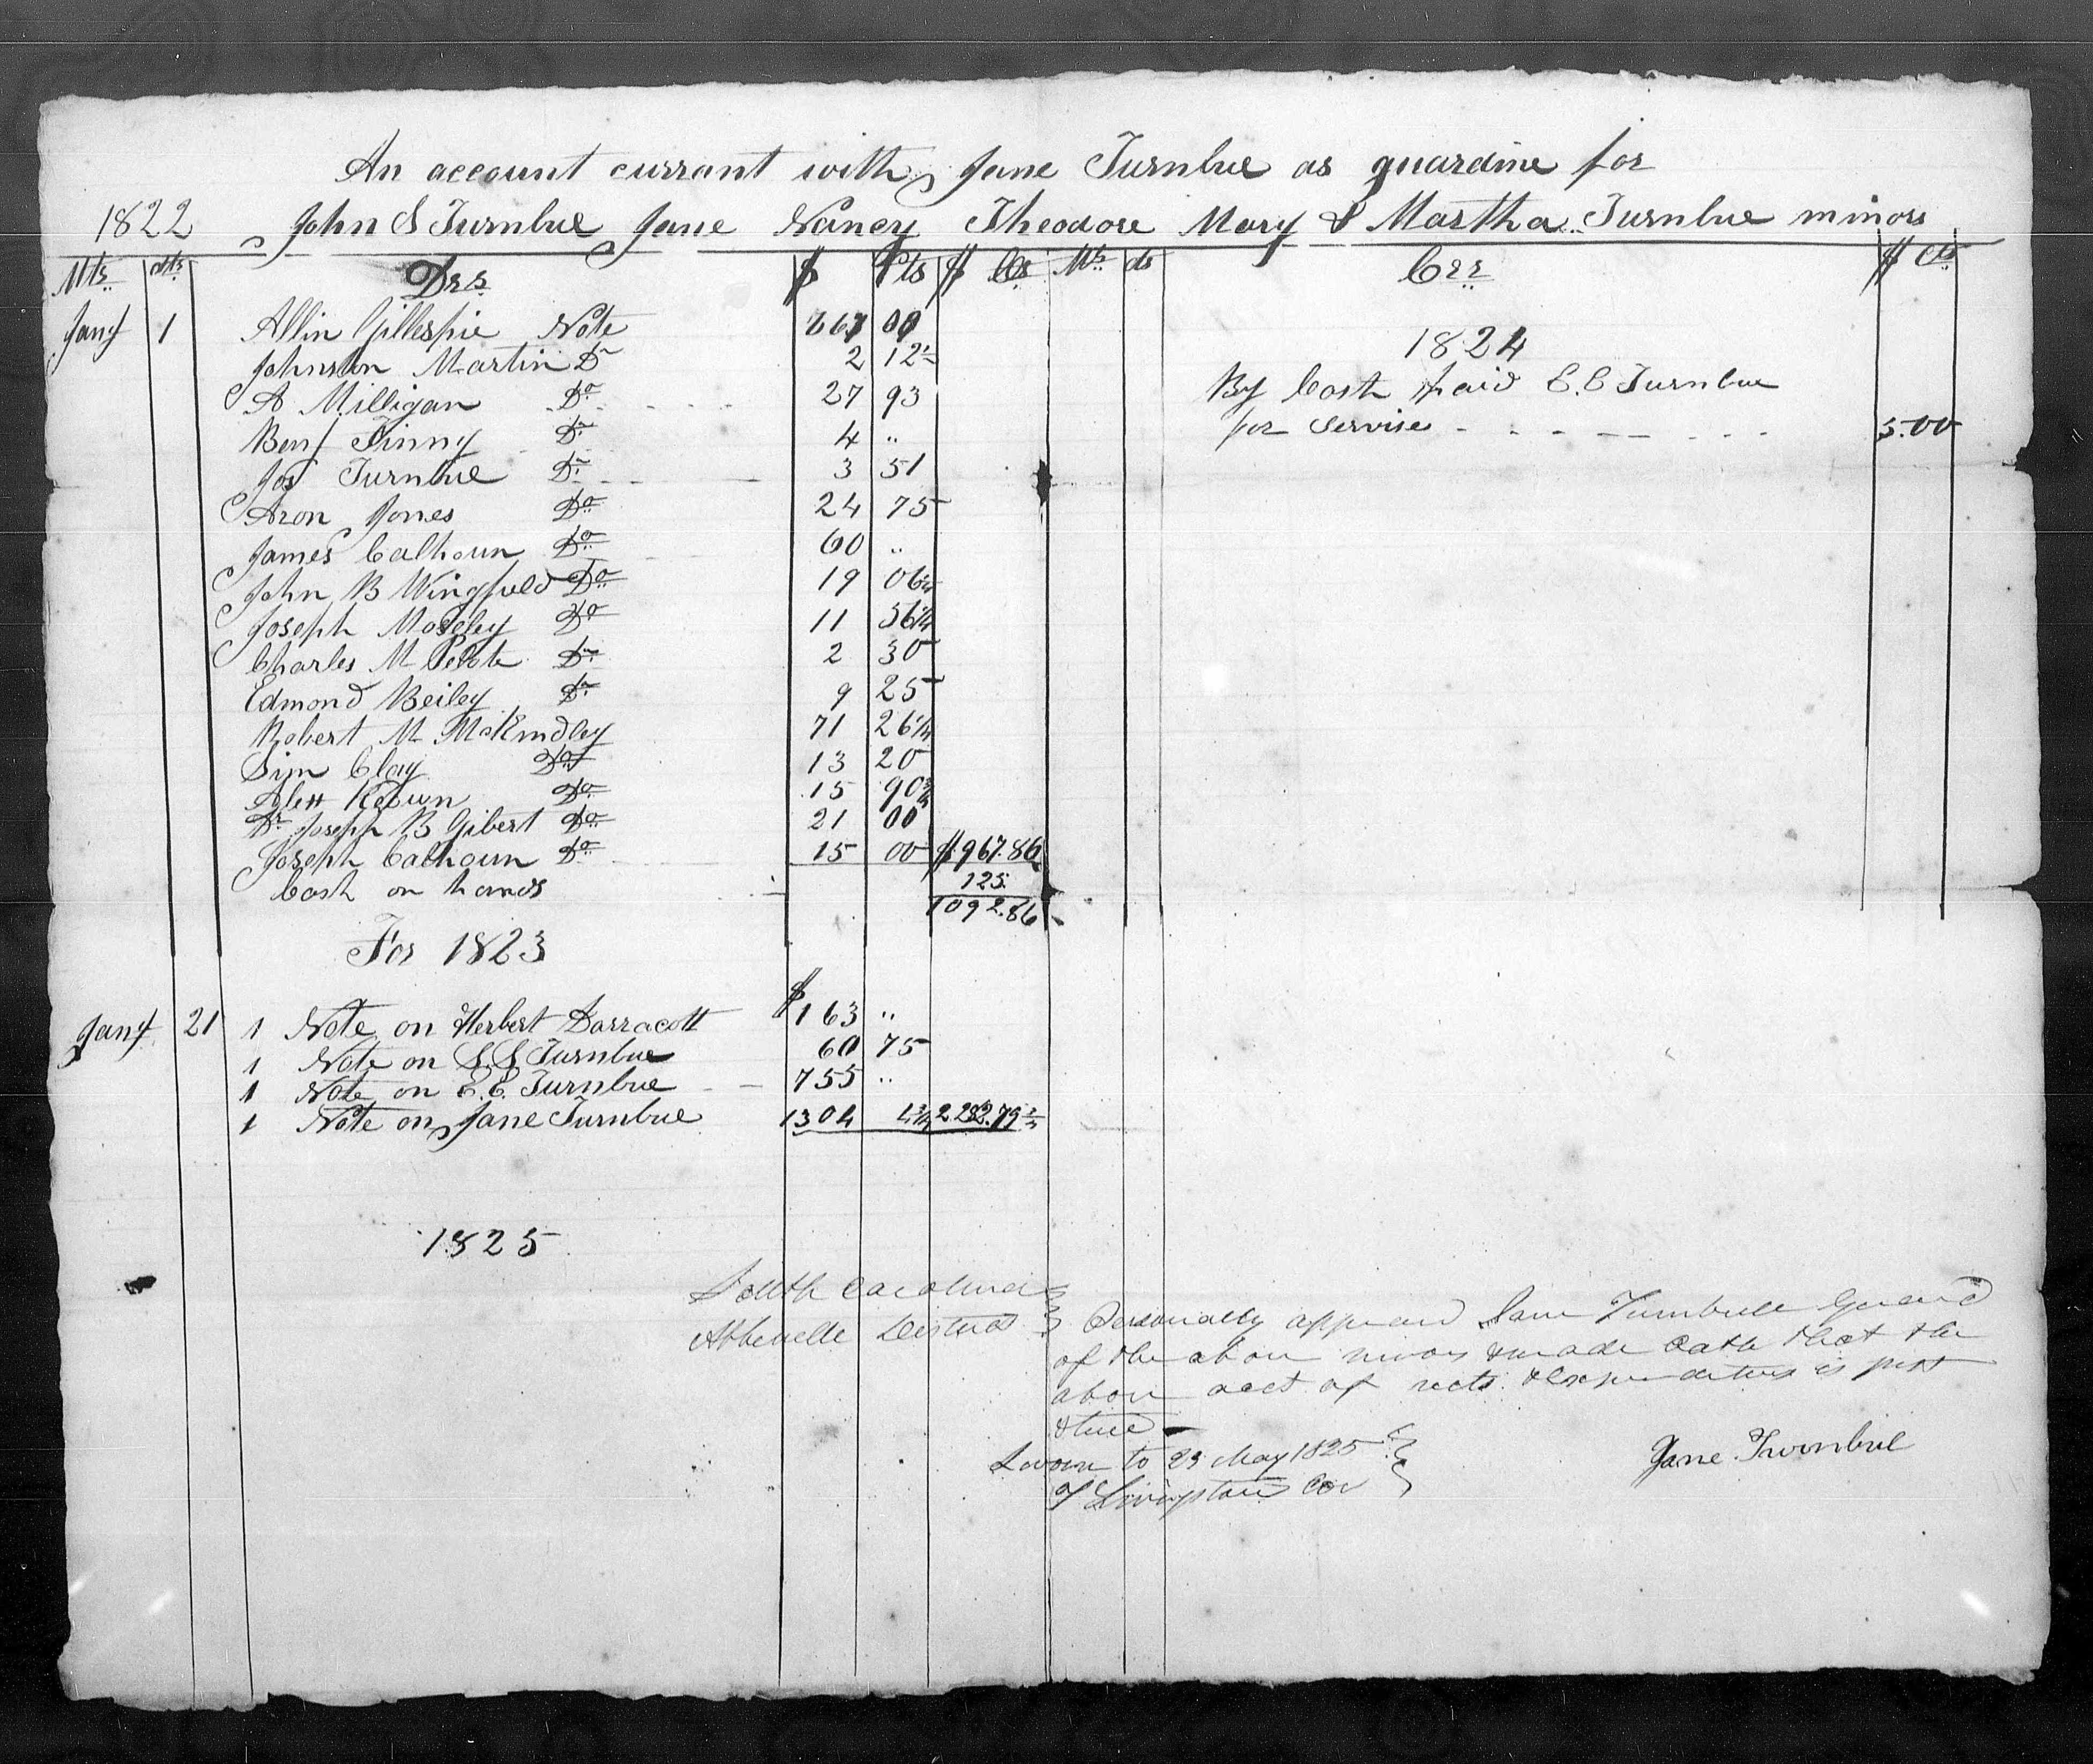 An account currant with Jane Turnbue as guardine for
1822 John S Turnbue Jane Nancy Theodore Mary & Martha Turnbue minors
Mts Drs $ Cts $ Cs Mts ds Crr $ Cts
Jany 1 Allin Gillespie Note 667 00
Johnson Martin Do 2 12½
A Milligan Do 27 93
Benj Finny Do 4 "
Jos Turnbue Do 3 51
Aron Jones Do 24 75
James Calhoun Do 60 "
John B Wingfield Do 19 06¼
Joseph Moseley Do 11 56¼
Charles M Pelote Do 2 30
Edmond Beiley Do 9 25
Robert M McKindley 71 26¼
Sim Clay Do 13 20
Alexr Do 15 90¾
Dr Joseph B Gibert Do 21 00
Joseph Calhoun Do 15 00 $967.86
Cash on hands 125
1092.86
For 1823
$
Jany 21 1 Note on Herbert Darracott 163 "
1 Note on S.S Turnbue 60 75
1 Note on E.E. Turnbue 755 "
1 Note on Jane Turnbue 1304 4¾ 2282.79¾
1825
1824
By Cash paid E.E Turnbue
for Servise 5.00
South Carolina
Abbeville District
Personally appeard Jane Turnbull Guard
of the above minors & made Oath that the
above acct of rects & Expenditures is just
& true
Sworn to 23 May 1825
T Livingston CCo
Jane Turnbul